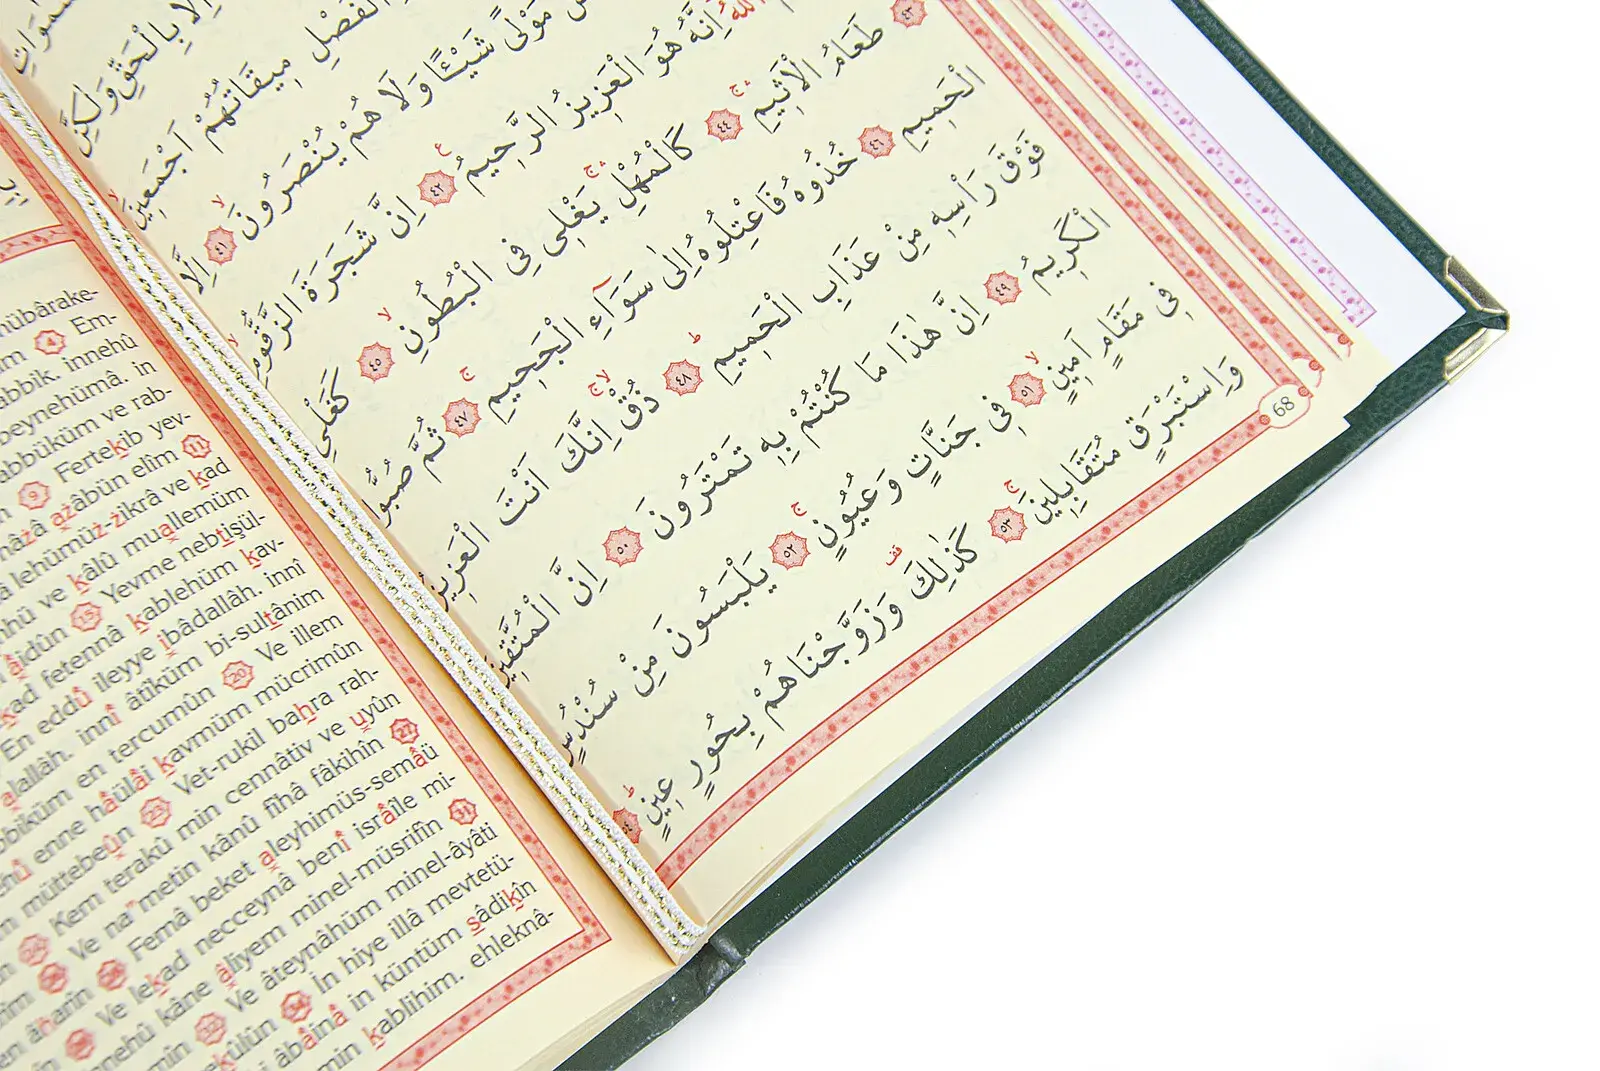 اِلَّا بِالْحَقِّ وَلٰكِنَّ
الْفَصْلِ مِيقَاتُهُمْ اَجْمَعِينَ
مَوْلًى شَيْـًٔا وَلَا هُمْ يُنْصَرُونَ ﴿٤١﴾ اِلَّا
اللّٰهُ اِنَّهُ هُوَ الْعَزِيزُ الرَّحِيمُ ﴿٤٢﴾ اِنَّ شَجَرَةَ الزَّقُّومِ
﴿٤٣﴾ طَعَامُ الْاَثِيمِ ﴿٤٤﴾ كَالْمُهْلِ يَغْلِى فِي الْبُطُونِ ﴿٤٥﴾ كَغَلْىِ
الْحَمِيمِ ﴿٤٦﴾ خُذُوهُ فَاعْتِلُوهُ اِلٰى سَوَٓاءِ الْجَحِيمِ ﴿٤٧﴾ ثُمَّ صُبُّوا
فَوْقَ رَاْسِهِ مِنْ عَذَابِ الْحَمِيمِ ﴿٤٨﴾ ذُقْ اِنَّكَ اَنْتَ الْعَزِيزُ
الْكَرِيمُ ﴿٤٩﴾ اِنَّ هٰذَا مَا كُنْتُمْ بِهِ تَمْتَرُونَ ﴿٥٠﴾ اِنَّ الْمُتَّقِينَ
فِي مَقَامٍ اَمِينٍ ﴿٥١﴾ فِي جَنَّاتٍ وَعُيُونٍ ﴿٥٢﴾ يَلْبَسُونَ مِنْ سُنْدُسٍ
وَاِسْتَبْرَقٍ مُتَقَابِلِينَ ﴿٥٣﴾ كَذٰلِكَ وَزَوَّجْنَاهُمْ بِحُورٍ عِينٍ ﴿٥٤﴾
68
mübârake-
4 Em-
innehû
beynehümâ. in
rabbüküm ve rab-
9 Fertekib yev-
azâbün elîm 11
lehümüz-zikrâ ve kad
ve kâlû muallemüm
âidûn 15 Yevme nebtişül-
kad fetennâ kablehüm kav-
En eddû ileyye ibâdallâh. innî
alallâh. innî âtîküm bi-sultânim
en tercumûn 20 Ve illem
enne hâülâi kavmüm mücrimûn
müttebeûn 23 Vet-rukil bahra rah-
Kem terakû min cennâtiv ve uyûn
Ve na'metin kânû fîhâ fâkihîn 27
Femâ beket aleyhimüs-semâü
Ve lekad necceynâ benî isrâîle mi-
kâne âliyem minel-müsrifîn 31
Ve âteynâhüm minel-âyâti
34 İn hiye illâ mevtetü-
âbâinâ in küntüm sâdikîn
min kablihim. ehleknâ-